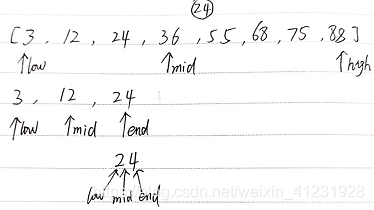 24
[3 , 12 , 24 , 36 , 55 , 68 , 75 , 88]
↑low ↑mid ↑high
3 , 12 , 24
↑low ↑mid ↑end
24
low mid end
https://blog.csdn.net/weixin_41231928